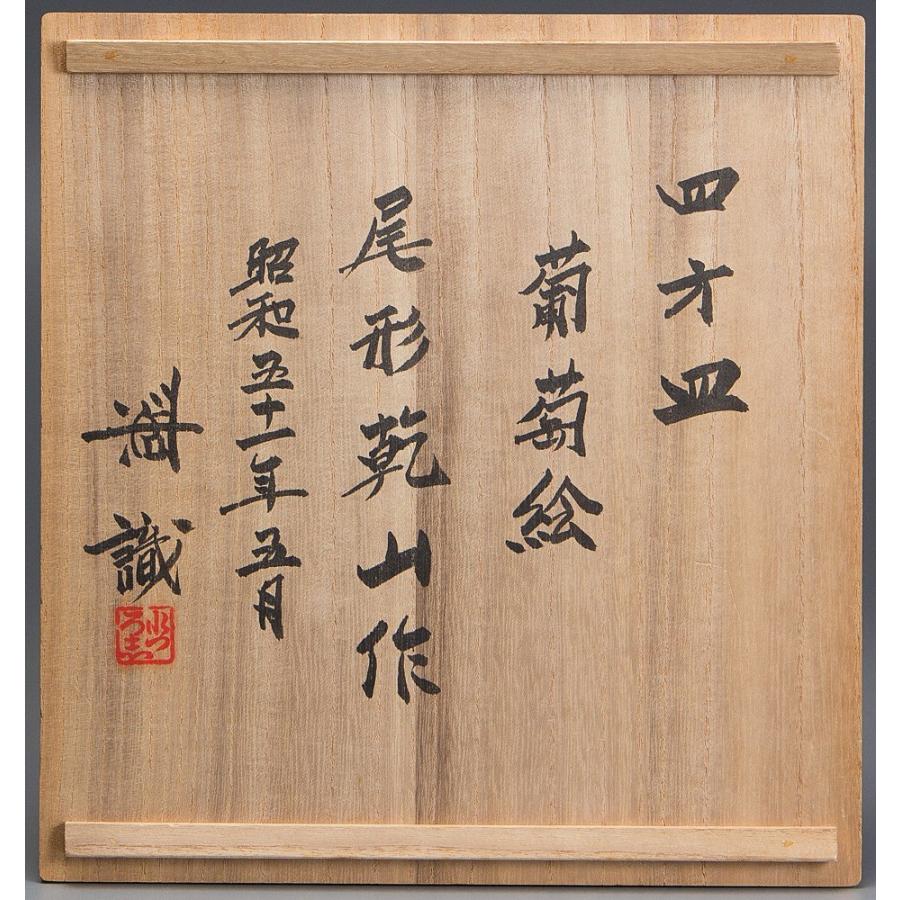 四方皿
葡萄絵
尾形乾山作
昭和五十一年五月
識